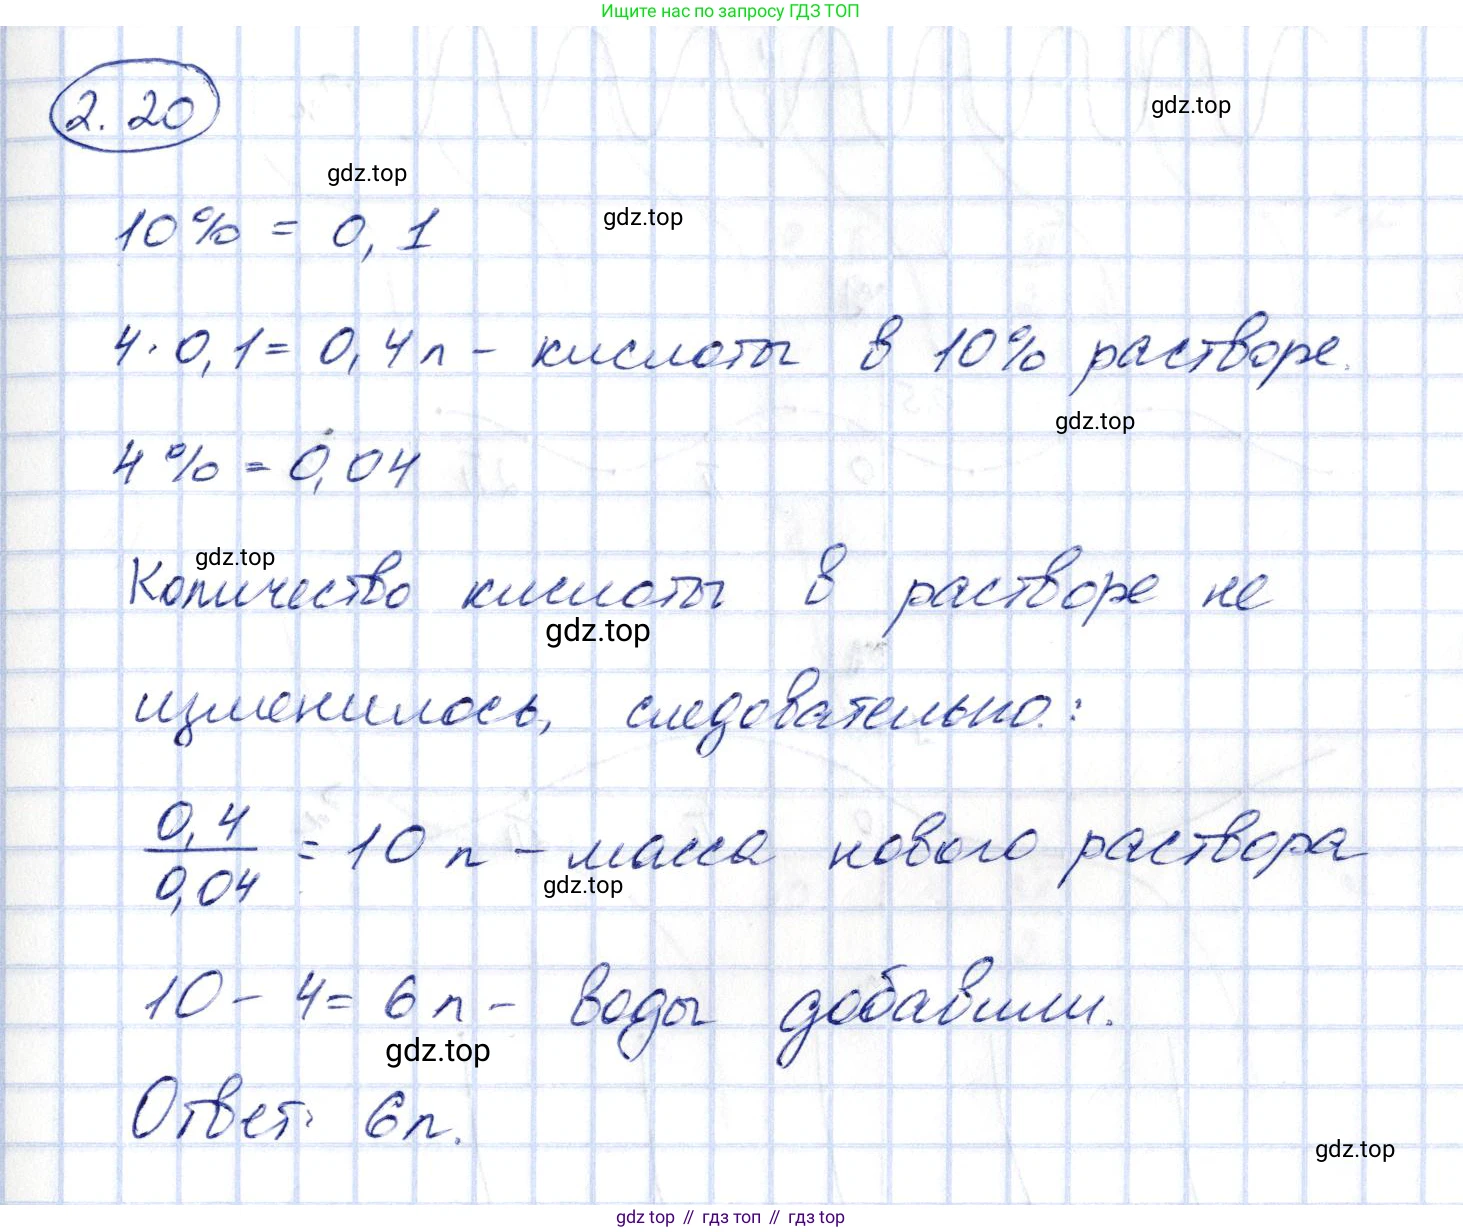 Ищите нас по запросу ГДЗ ТОП
2.20
gdz.top
gdz.top
gdz.top
10% = 0,1
4·0,1= 0,4л - кислоты в 10% растворе.
gdz.top
4% = 0,04
gdz.top
Количество кислоты в растворе не
gdz.top
изменилось, следовательно:
0,4/0,04 = 10 л - масса нового раствора
gdz.top
10 - 4= 6 л - воды добавили.
gdz.top
Ответ: 6л.
gdz.top
gdz top // гдз топ // гдз top